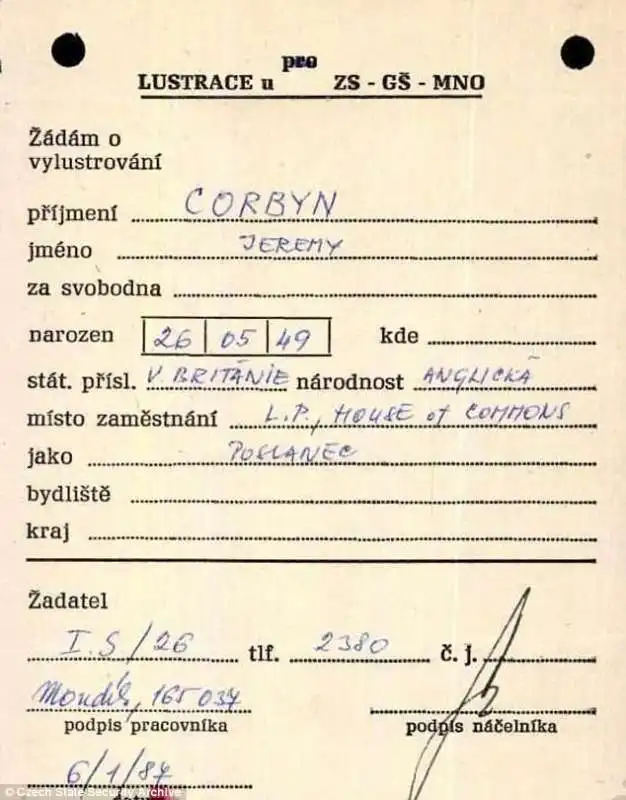 pro
LUSTRACE u ZS - GŠ - MNO
Žádám o
vylustrování
příjmení CORBYN
jméno JEREMY
za svobodna
narozen 26 05 49 kde
stát. přísl. V. BRITÁNIE národnost ANGLICKÁ
místo zaměstnání L.P., HOUSE of COMMONS
jako POSLANEC
bydliště
kraj
Žadatel
I.S/26 tlf. 2380 č. j.
165 037
podpis pracovníka podpis náčelníka
6/1/87
© Czech State Security Archive